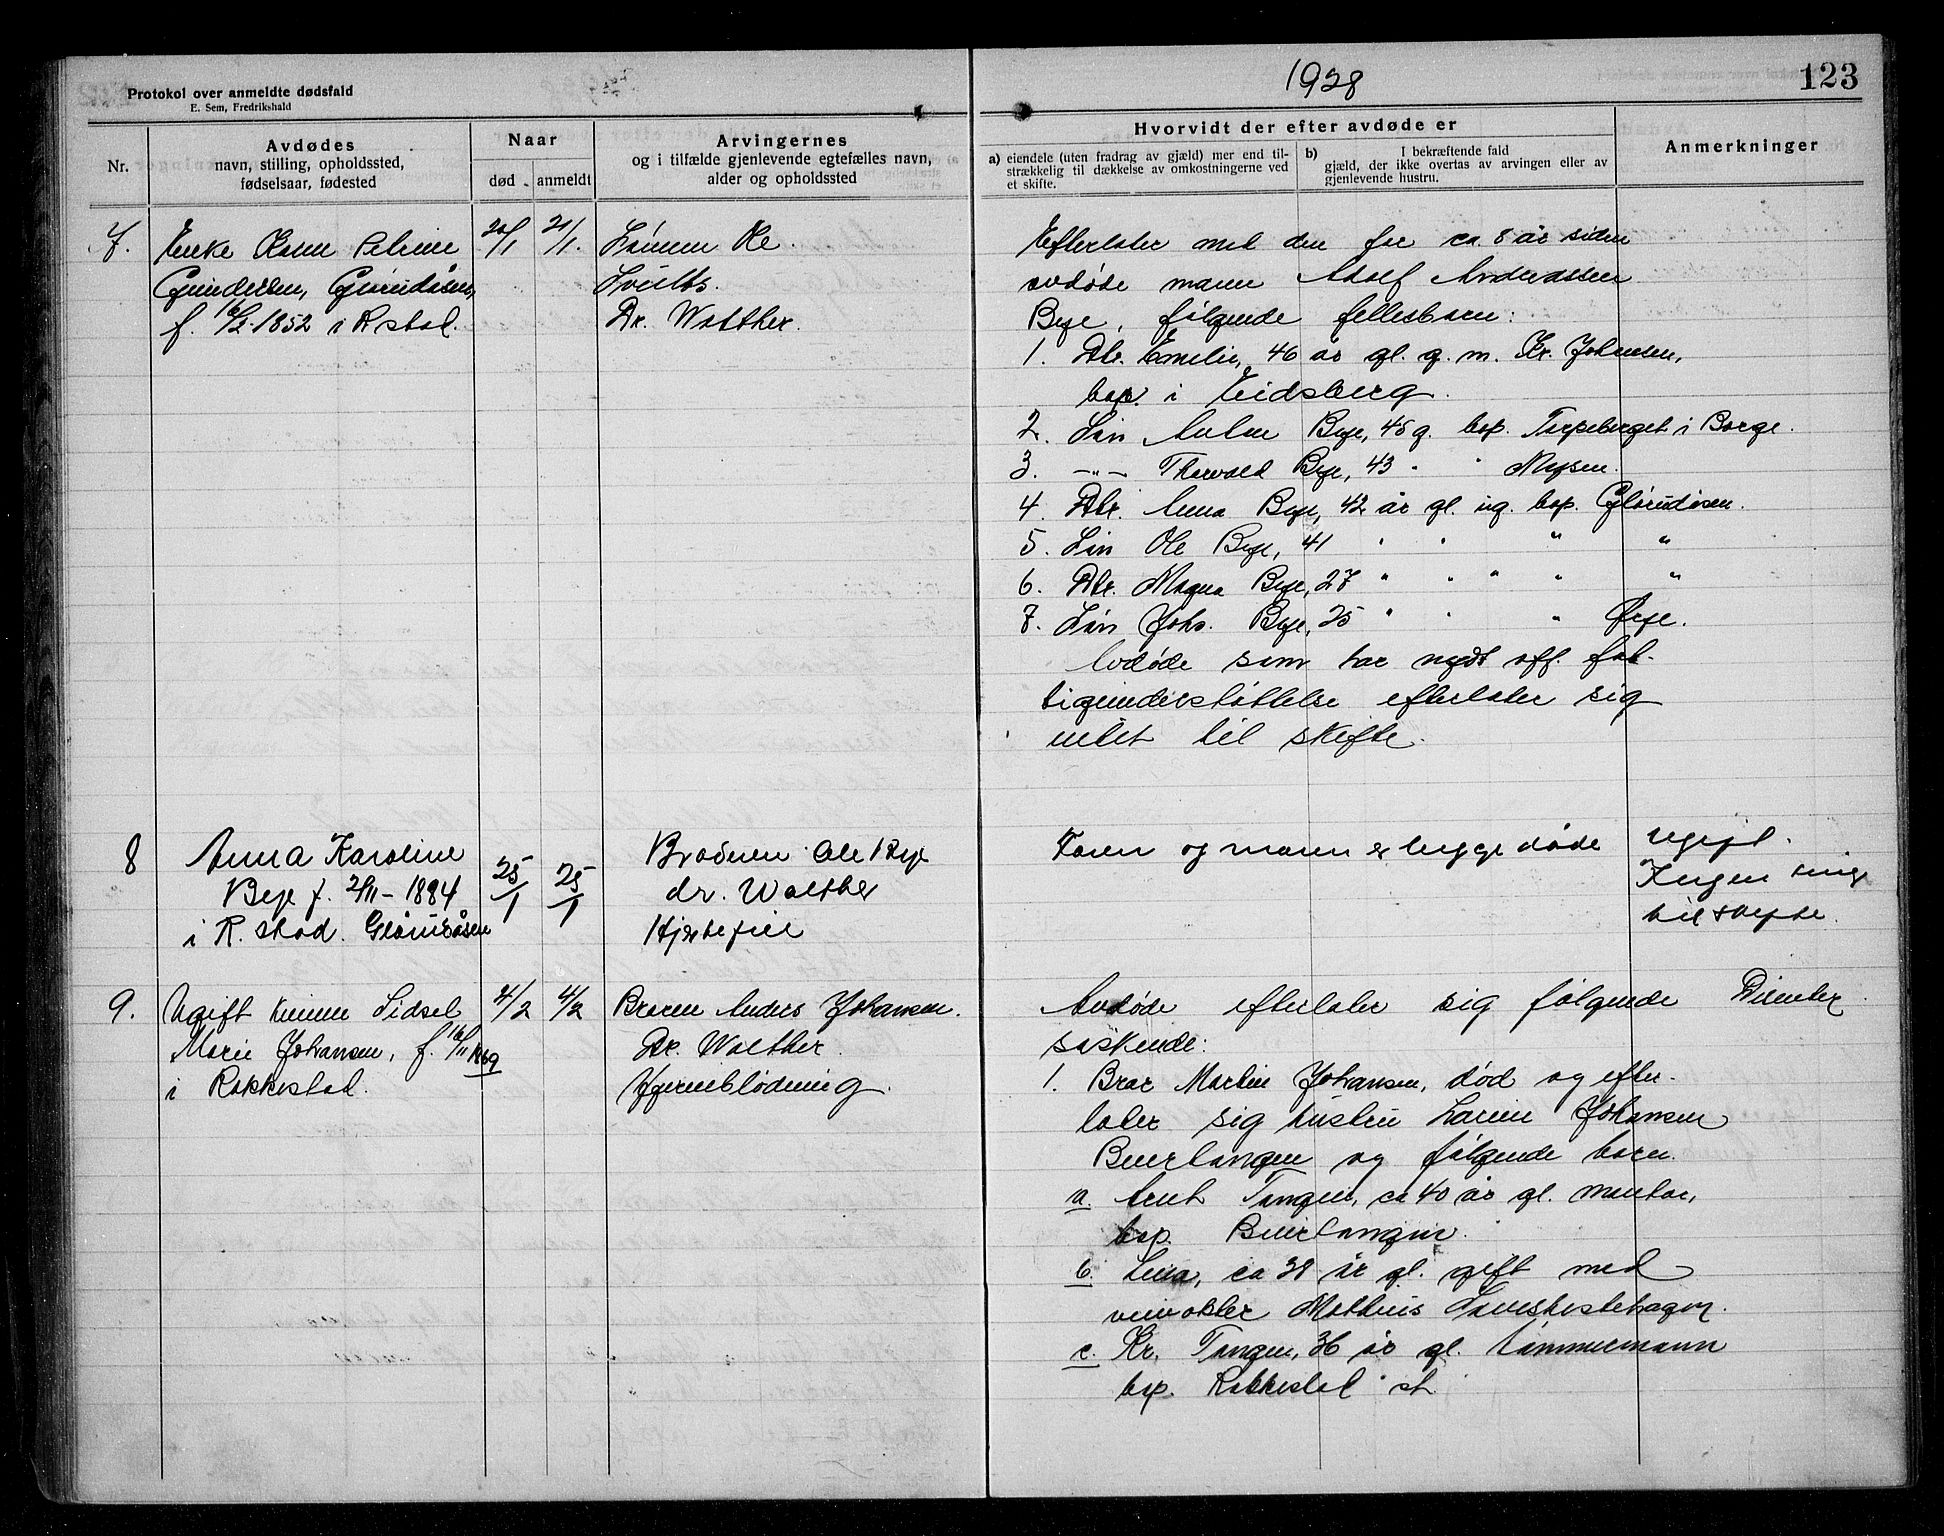 Protokol over anmeldte dødsfald
E. Sem, Fredrikshald
1928
123
Nr.
Avdødes
navn, stilling, opholdssted,
fødselsaar, fødested
Naar
død
anmeldt
Arvingernes
og i tilfælde gjenlevende egtefælles navn,
alder og opholdssted
Hvorvidt der efter avdøde er
a) eiendele (uten fradrag av gjæld) mer end til-
strækkelig til dækkelse av omkostningerne ved
et skifte.
b) I bekræftende fald
gjæld, der ikke overtas av arvingen eller av
gjenlevende hustru.
Anmerkninger
7.
Enke Karen Petrine
Gundersen, Glørudåsen,
f. 1852 i R.stad.
20/1
21/1.
Sønnen Ole.
Dr. Walther.
Efterlater med den for ca. 8 år siden
avdøde mann Adolf Andreassen
Bye, følgende fellesbarn:
1. Dtr. Emilie, 46 år gl. g. m. Kr. Johansen,
bop. i Eidsberg.
2. Søn Anton Bye, 45 g. bop. Torpeberget i Borge.
3. —"— Thorvald Bye, 43 " " Mysen.
4. Dtr. Anna Bye, 42 år gl. ug. bop. Glørudåsen.
5. Søn Ole Bye, 41 " " " "
6. Dtr. Magna Bye, 27 " " " " "
7. Søn Johs. Bye, 25 " " " Ørje.
Avdøde som har nydt off. fat-
tigunderstøttelse efterlater sig
intet til skifte.
8
Anna Karoline
Bye f. 2/11 - 1884
i R. stad. Glørudåsen
25/1
25/1
Broderen Ole Bye
dr. Walther
Hjertefeil
Faren og moren er begge døde
ugift.
Ingen ting
til skifte.
9.
Ugift kvinne Sidsel
Marie Johansen, f. 16/11 1869
i Rakkestad.
4/2
4/2
Broren Anders Johansen.
Dr. Walther.
Hjerneblødning.
Avdøde efterlater sig følgende
søskende:
1. Bror Martin Johansen, død og efter-
later sig hustru Larine Johansen
Buertangen og følgende barn.
a. Arnt Tangen, ca 40 år gl. murer,
bop. Buertangen.
b. Lina, ca 38 år gl. gift med
veivokter Mathias
c. Kr. Tangen, 36 år gl. tømmermann
bop. Rakkestad st.